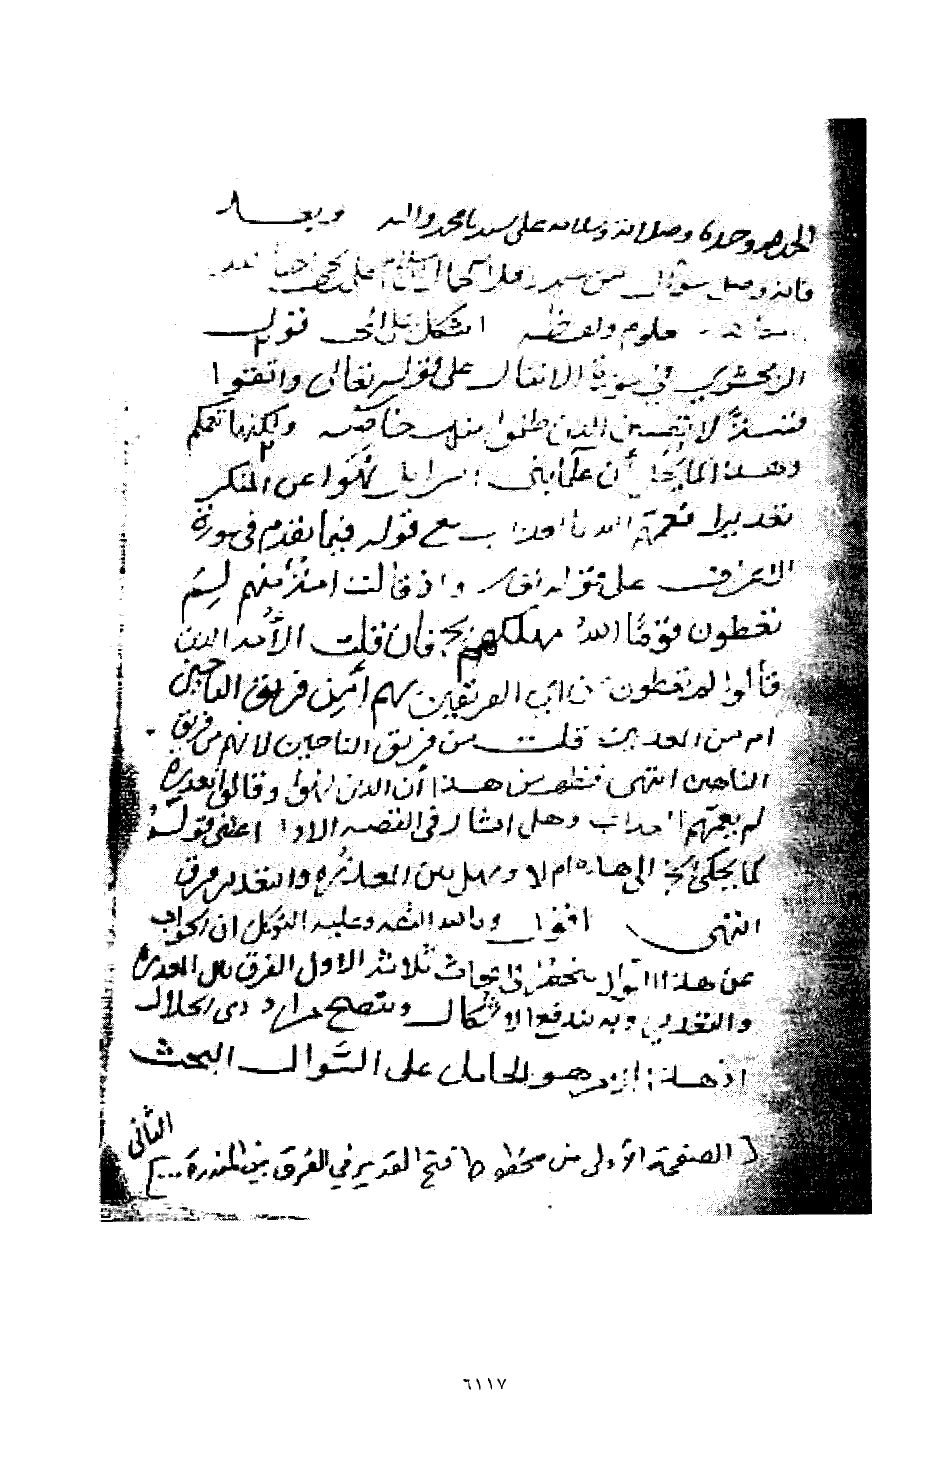 الحمد لله وحده وصلاته وسلامه على سيدنا محمد واله وبعد
فانه وصل سؤال من سيدي
ولفظه اشكل قول
الزمخشري في سورة الانفال على قوله تعالى واتقوا
فتنة لا تصيبن الذين ظلموا منكم خاصة
وهذا كما يحكى أن علما بني اسرايل نهوا عن المنكر
تعذيرا فعمهم الله بالعذاب مع قوله فيما تقدم في سورة
الاعراف على قوله تعالى واذ قالت امة منهم لم
تعظون قوما الله مهلكهم الخ فان قلت الأمة الذين
قالوا لم تعظون من اي الفريقين هم أمن فريق الناجين
ام من المعذبين قلت من فريق الناجين لانهم من فريق
الناهين انتهى فظهر من هذا أن الذين نهوا وقالوا معذرة
لم يعمهم العذاب وهل اشار في القصة الاولى اعني قوله
كما يحكى الخ الى هذه ام لا وهل بين المعذرة والتعذير فرق
انتهى اقول وبالله الثقة وعليه التوكل ان الجواب
عن هذا السؤال ينحصر في ابحاث ثلاثة الاول الفرق بين المعذرة
والتعذير وبه يندفع الاشكال ويتضح مراد ذي الجلال
اذ هذا الامر هو الحامل على السؤال البحث
الثاني
[ الصفحة الأولى من مخطوط فتح القدير في الفرق بين المعذرة ... ]
٦١١٧